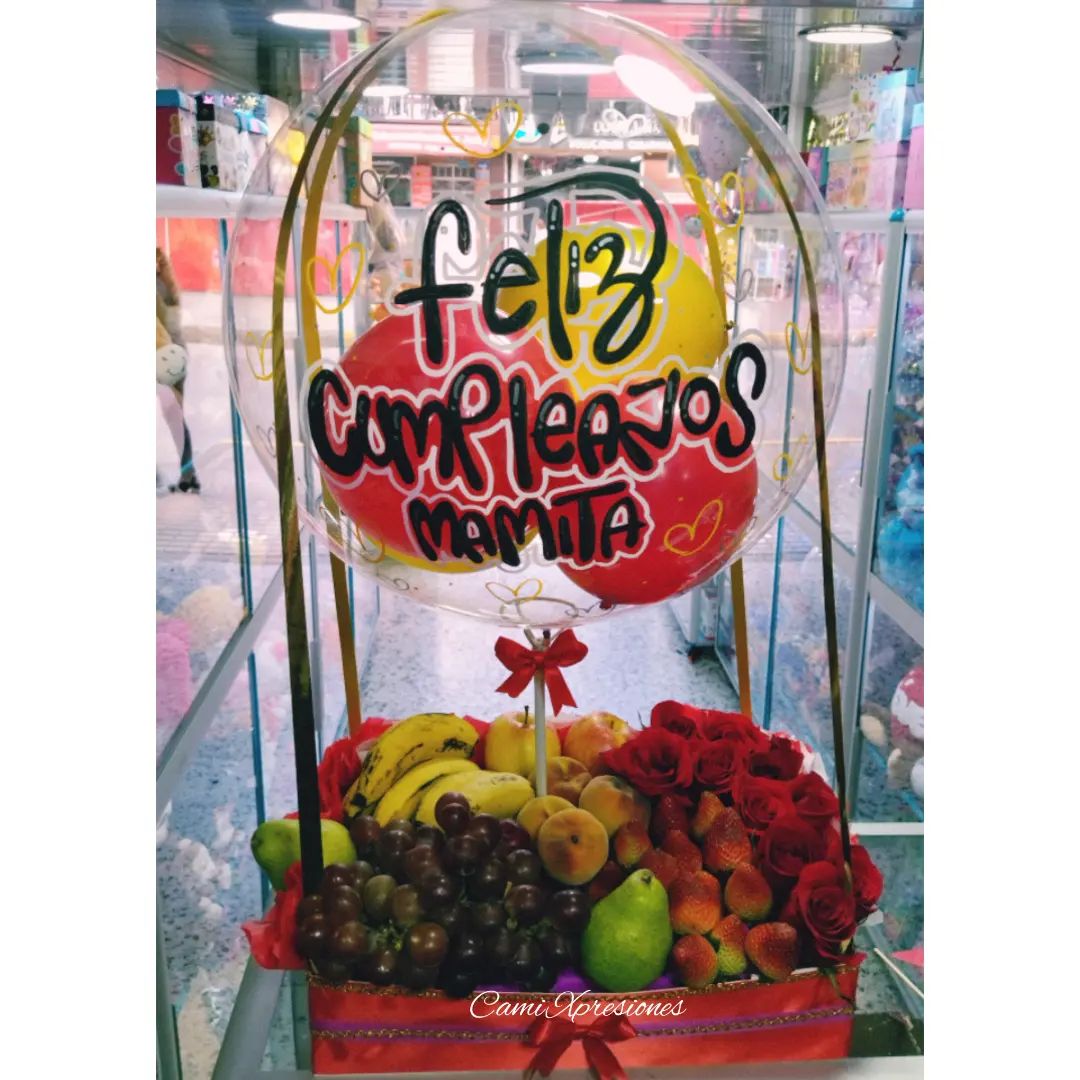 feliz
Cumpleaños
mamita
CamiXpresiones